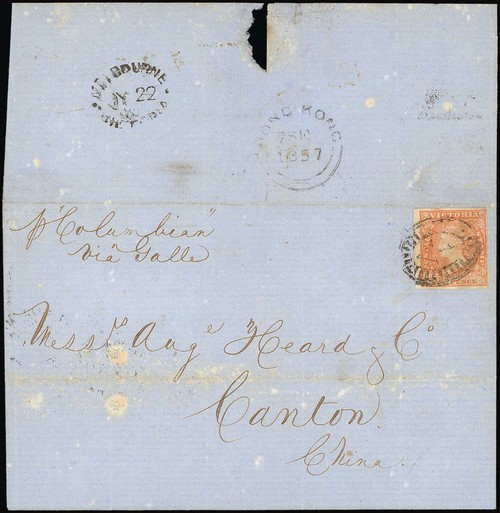 MELBOURNE
JY 22
VICTORIA
HONG KONG
1857
VICTORIA
PENCE
pr "Columbian"
via Galle
Messrs Augs Heard & Co
Canton
China.